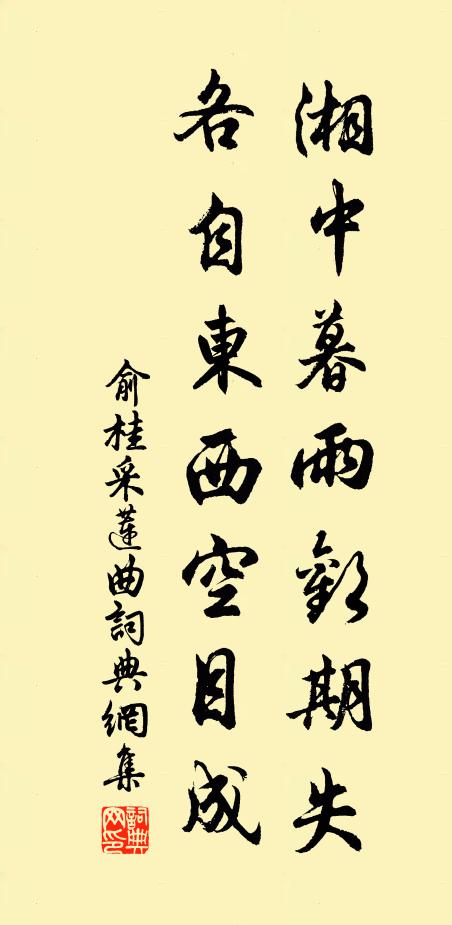 湘中暮雨歡期失
各自東西空目成
俞桂采蓮曲詞典網集
詞典网印